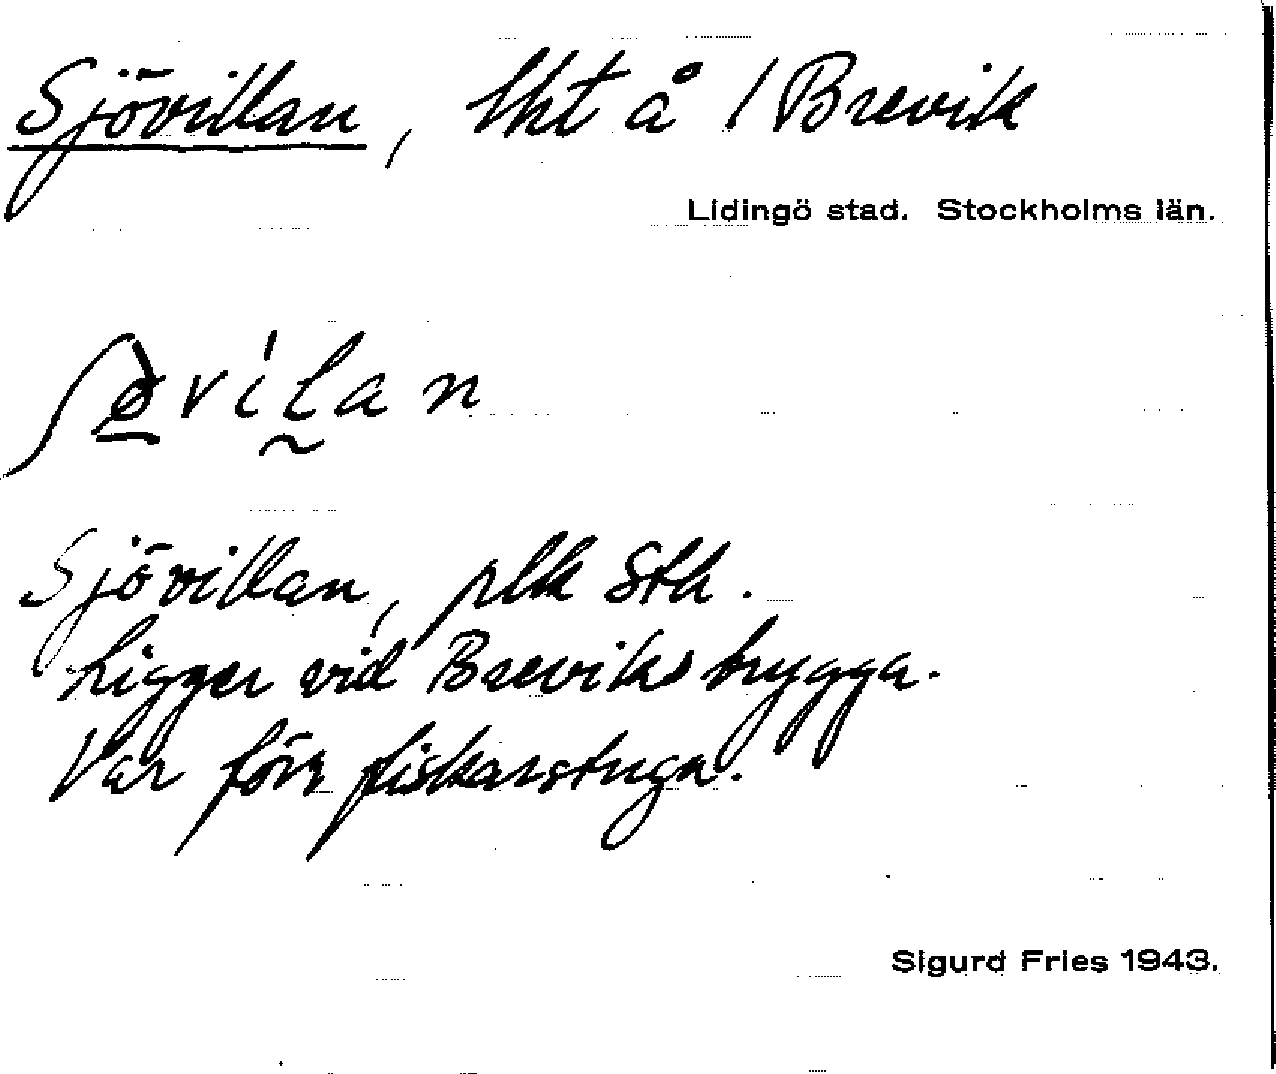 Sjövillan, lht å / Brevik
Lidingö stad. Stockholms län.
Sjövillan, plk Sthl.
Ligger vid Breviks brygga.
Var förr fiskarstuga.
Sigurd Fries 1943.